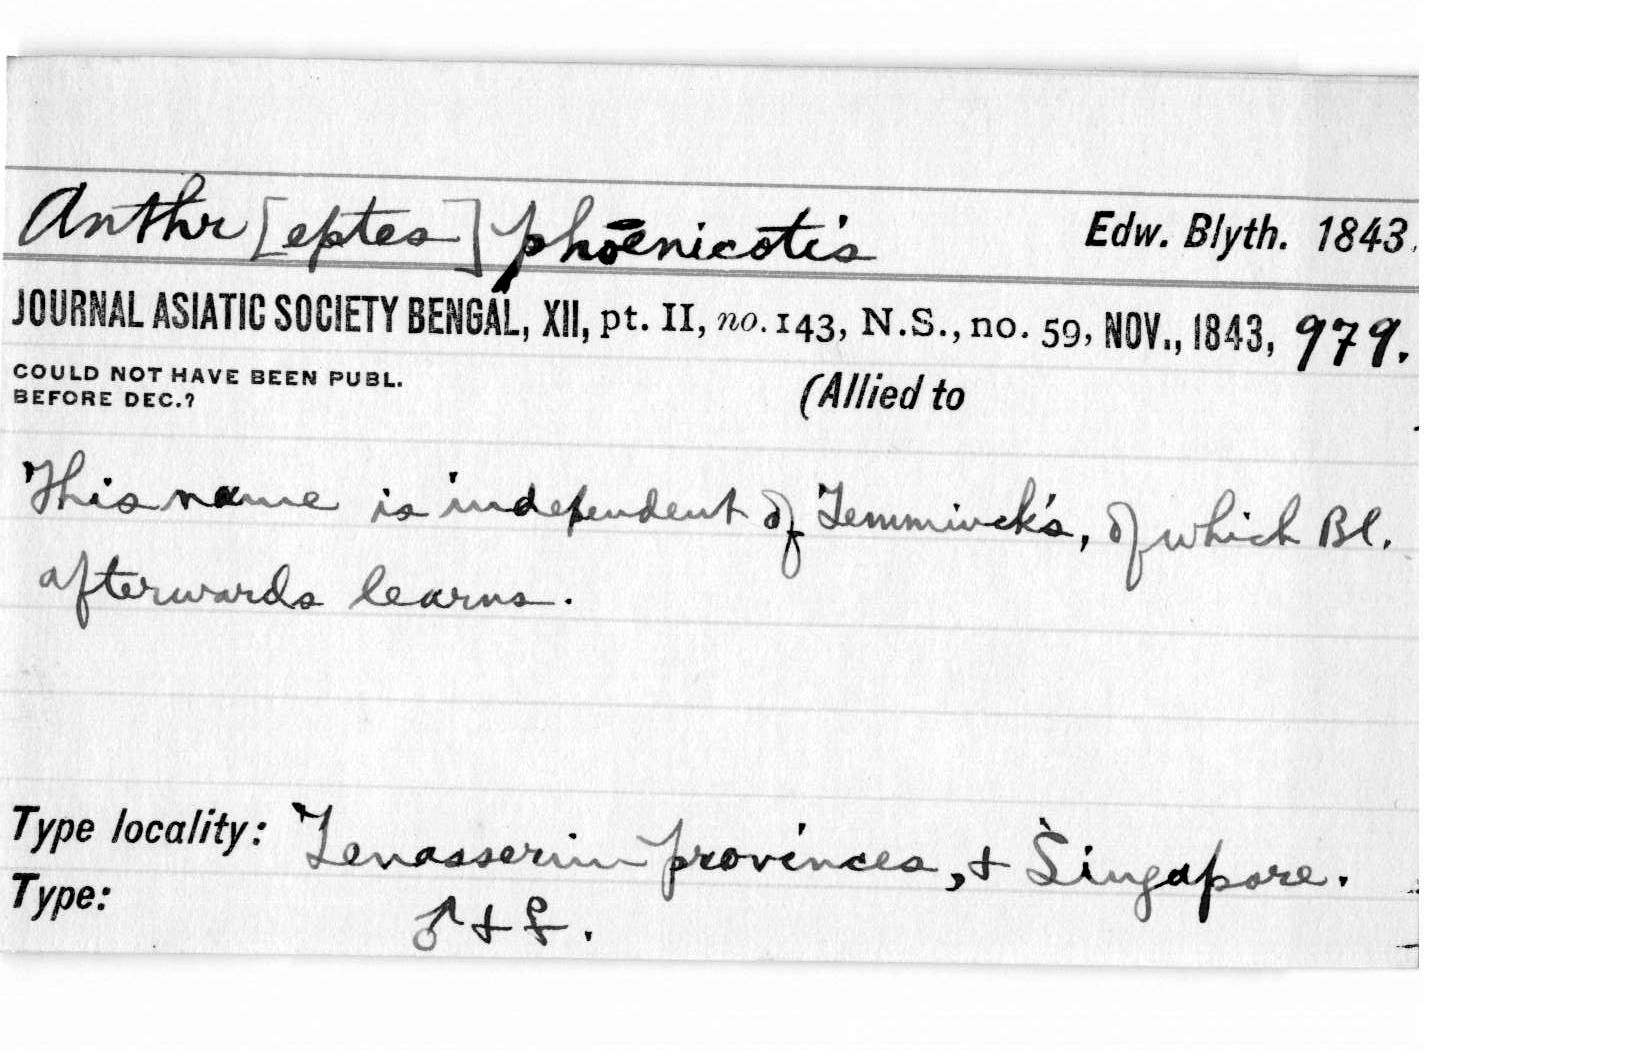 Anthr [eptes] phœnicotis Edw. Blyth. 1843.
JOURNAL ASIATIC SOCIETY BENGAL, XII, pt. II, no. 143, N.S., no. 59, NOV., 1843, 979.
COULD NOT HAVE BEEN PUBL.
BEFORE DEC.?
(Allied to
This name is independent of Temminck's, of which Bl.
afterwards learns.
Type locality: Tenasserim provinces, + Singapore.
Type: ♂ + ♀.